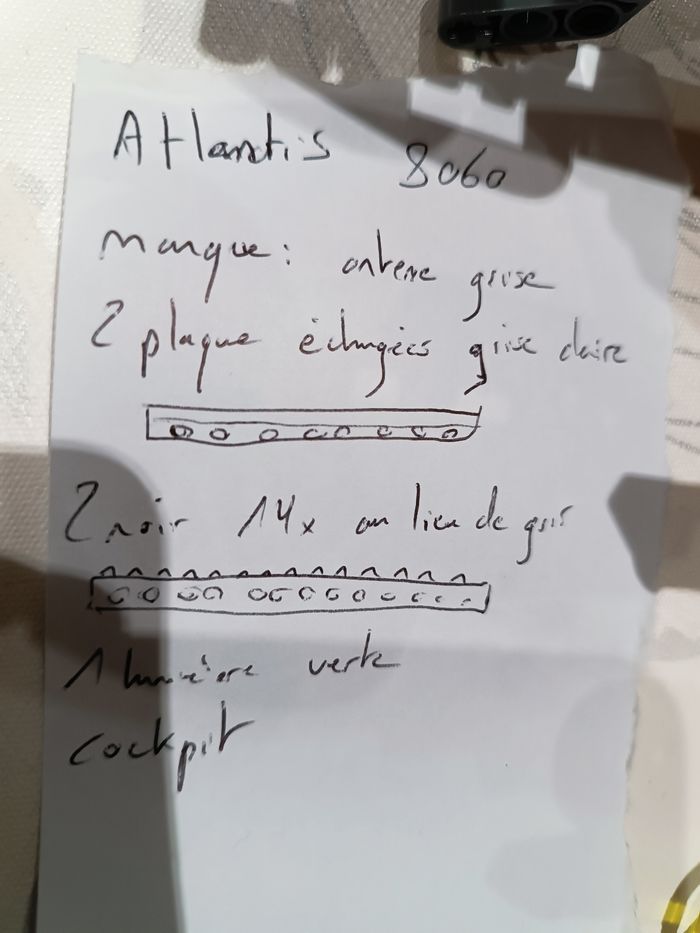 Atlantis 8060
manque : antene grise
2 plaque échngées grise claire
2 noir 14x au lieu de gris
1 lumière verte
cockpit